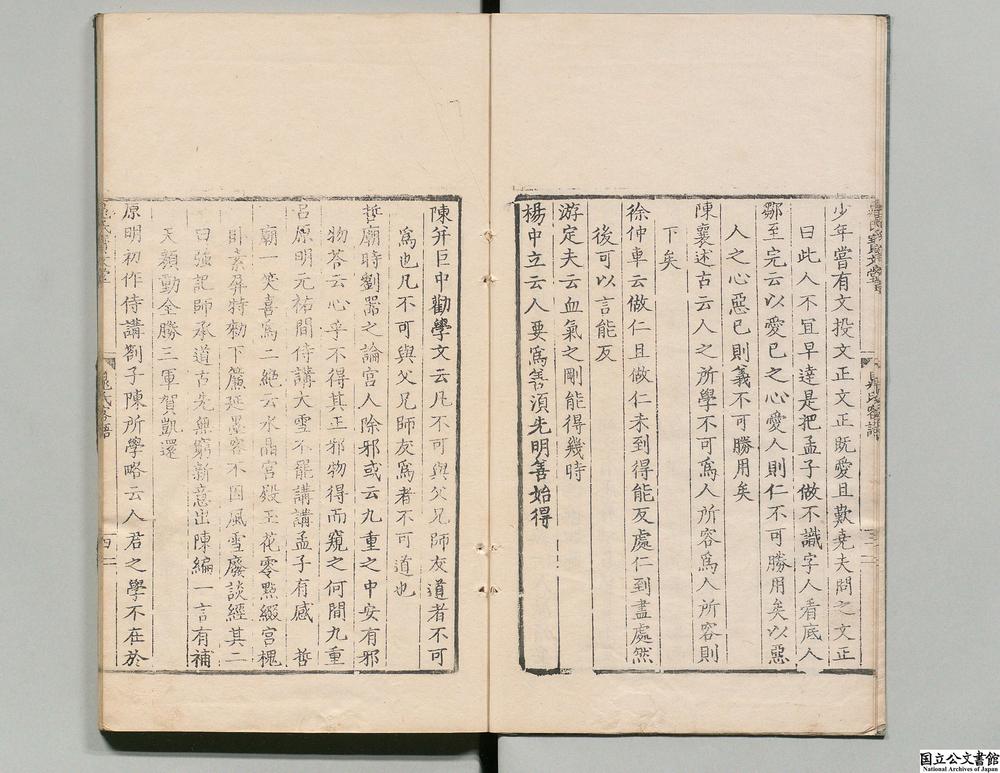 少年嘗有文投文正文正既愛且歎堯夫問之文正
曰此人不宜早達是把孟子做不識字人看底人
鄒至完云以愛己之心愛人則仁不可勝用矣以惡
人之心惡己則義不可勝用矣
陳襄述古云人之所學不可爲人所容爲人所容則
下矣
徐仲車云做仁且做仁未到得能反處仁到盡處然
後可以言能反
游定夫云血氣之剛能得幾時
楊中立云人要爲善須先明善始得
晁氏客語
陳幷巨中勸學文云凡不可與父兄師友道者不可
爲也凡不可與父兄師友爲者不可道也
哲廟時劉器之論宮人除邪或云九重之中安有邪
物答云心幸不得其正邪物得而窺之何間九重
呂原明元祐間侍講大雪不罷講講孟子有感 哲
廟一笑喜爲二絕云水晶宮殿玉花零點綴宮槐
臥素屏特勑下簾延墨客不因風雪廢談經其二
曰強記師承道古先無窮新意出陳編一言有補
天顏動全勝三軍賀凱還
原明初作侍講劄子陳所學略云人君之學不在於
晁氏客語
四二
国立公文書館
National Archives of Japan